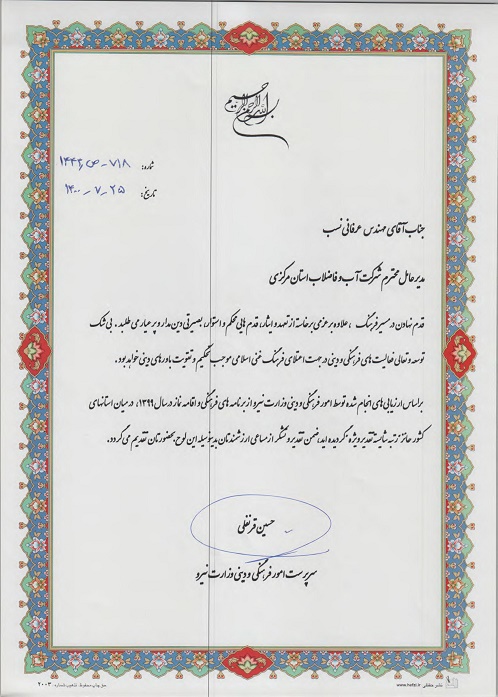 بسم الله الرحمن الرحیم
شماره: ۷۱۸-ص-۱۴۴۲
تاریخ: ۱۴۰۰/۷/۲۵
جناب آقای مهندس عرفانی نسب
مدیر عامل محترم شرکت آب و فاضلاب استان مرکزی
قدم نهادن در مسیر فرهنگ ، علاوه بر عزمی برخاسته از تعهد و ایثار، قدم هایی محکم و استوار، بصیرتی دین مدار و پر عیار می طلبد. بی شک
توسعه و تعالی فعالیت های فرهنگی و دینی در جهت اعتلای فرهنگ غنی اسلامی موجب تحکیم و تقویت باورهای دینی خواهد بود.
براساس ارزیابی های انجام شده توسط امور فرهنگی و دینی وزارت نیرو از برنامه های فرهنگی و اقامه نماز در سال ۱۳۹۹، در میان استانهای
کشور حائز رتبه شایسته تقدیر ویژه گردیده اید، ضمن تقدیر و تشکر از مساعی ارزشمندتان بدینوسیله این لوح بحضورتان تقدیم می گردد.
حسین قرنفلی
سرپرست امور فرهنگی و دینی وزارت نیرو
حق چاپ محفوظ. تذهیب شماره: ۲۰۰۳
www.hafzi.ir